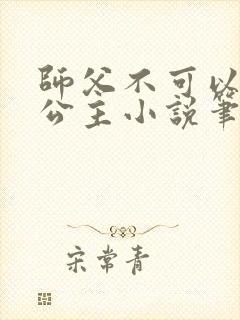 師父不可以
公主小説筆
宋常青